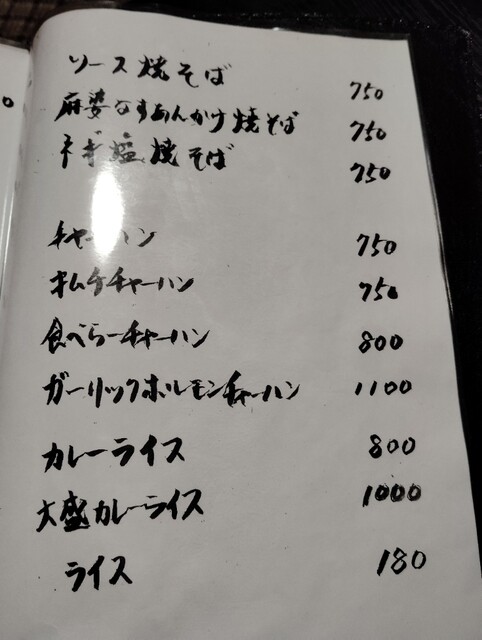 0
ソース焼そば 750
麻婆なすあんかけ焼そば 750
ネギ塩焼そば 750
チャーハン 750
キムチチャーハン 750
食べらーチャーハン 800
ガーリックホルモンチャーハン 1100
カレーライス 800
大盛カレーライス 1000
ライス 180